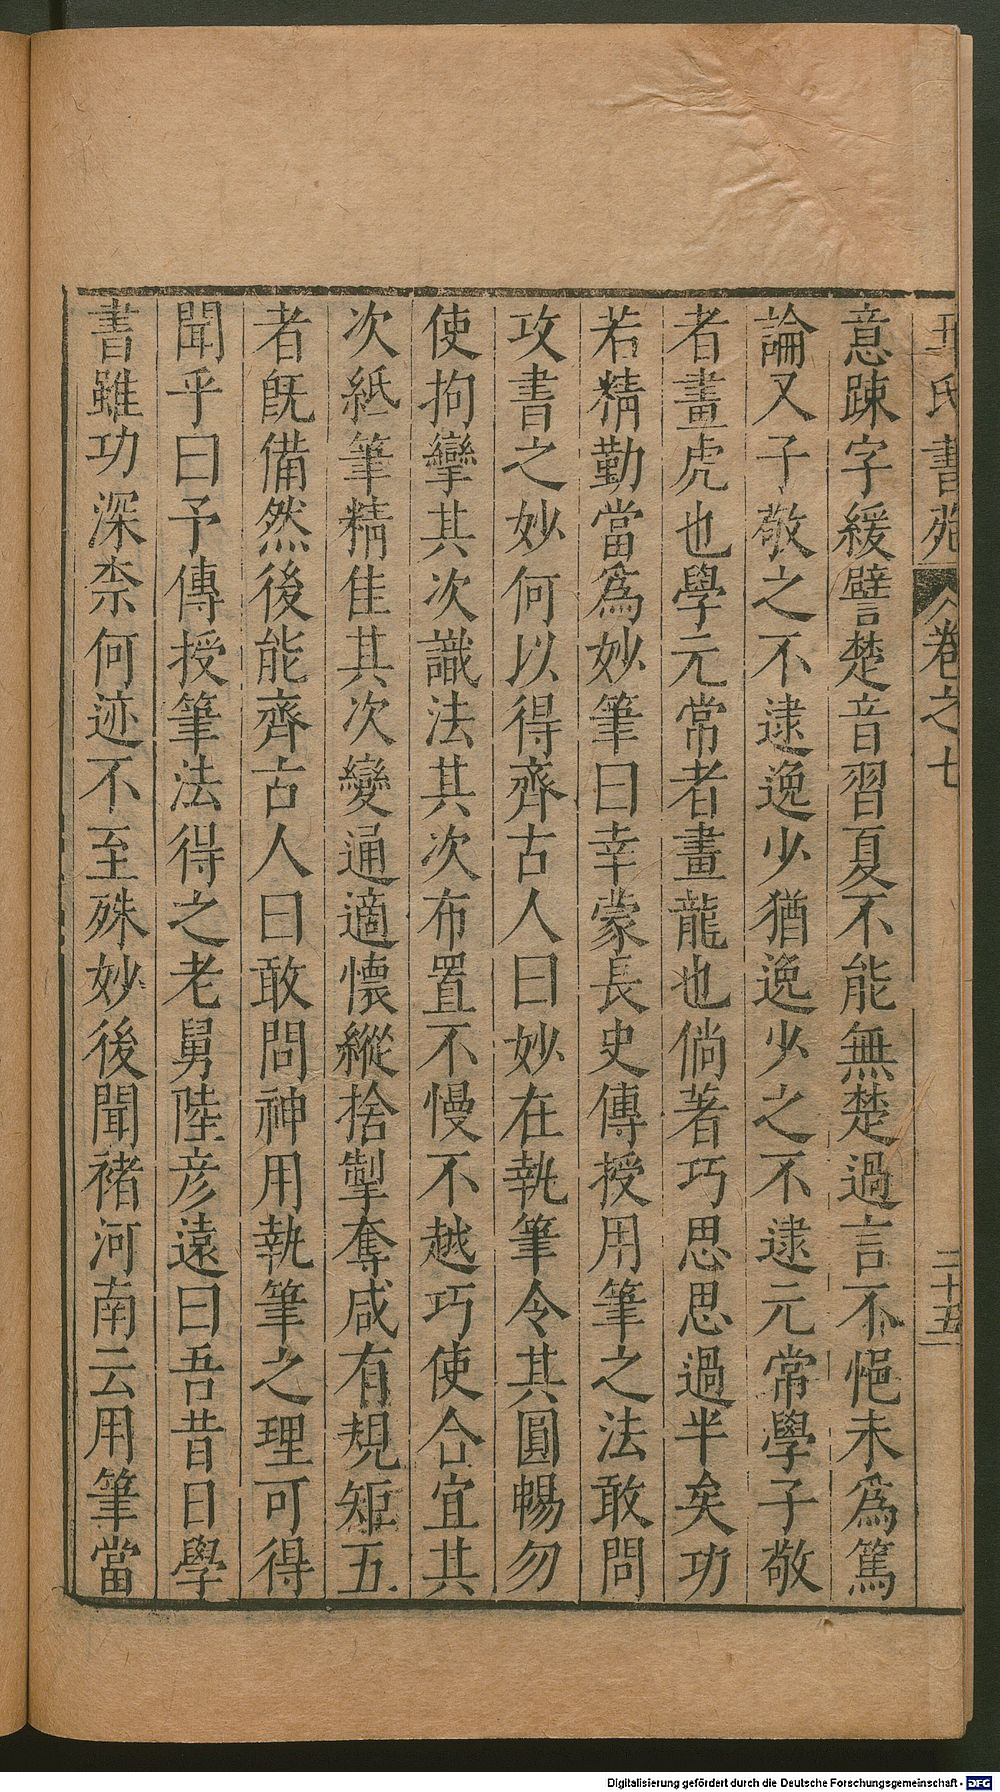 王氏書苑 卷之七 二十五
意踈字緩譬楚音習夏不能無楚過言不悒未爲篤
論又子敬之不逮逸少猶逸少之不逮元常學子敬
者畫虎也學元常者畫龍也倘著巧思思過半矣功
若精勤當爲妙筆曰幸蒙長史傳授用筆之法敢問
攻書之妙何以得齊古人曰妙在執筆令其圓暢勿
使拘攣其次識法其次布置不慢不越巧使合宜其
次紙筆精佳其次變通適懷縱捨掣奪咸有規矩五
者旣備然後能齊古人曰敢問神用執筆之理可得
聞乎曰予傳授筆法得之老舅陸彦遠曰吾昔日學
書雖功深柰何迹不至殊妙後聞褚河南云用筆當
Digitalisierung gefördert durch die Deutsche Forschungsgemeinschaft - DFG